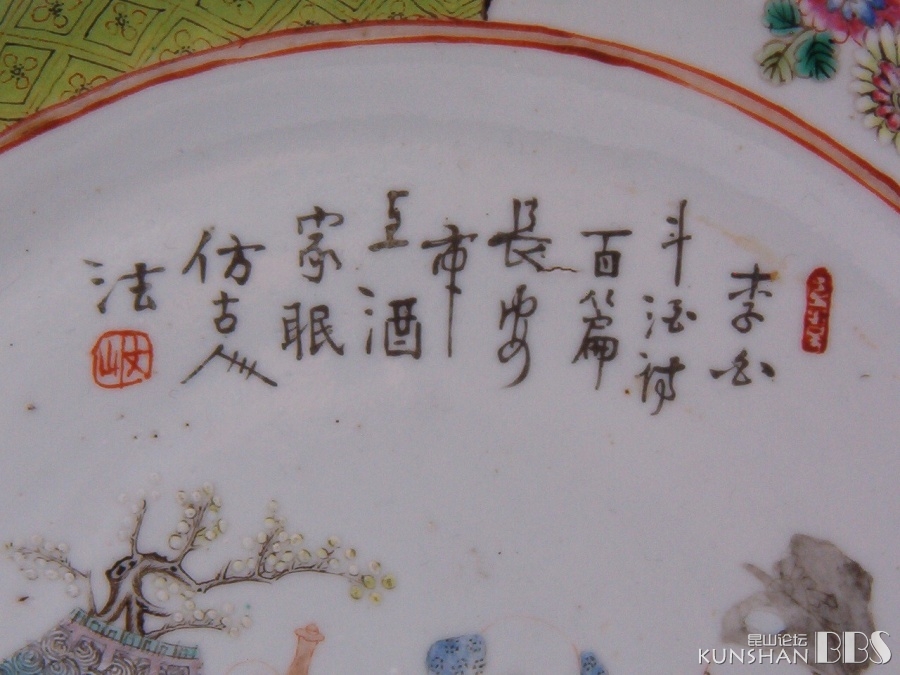 李白
斗酒詩
百篇
長安
市
上酒
家眠
仿古人
法
昆山论坛
KUNSHAN BBS